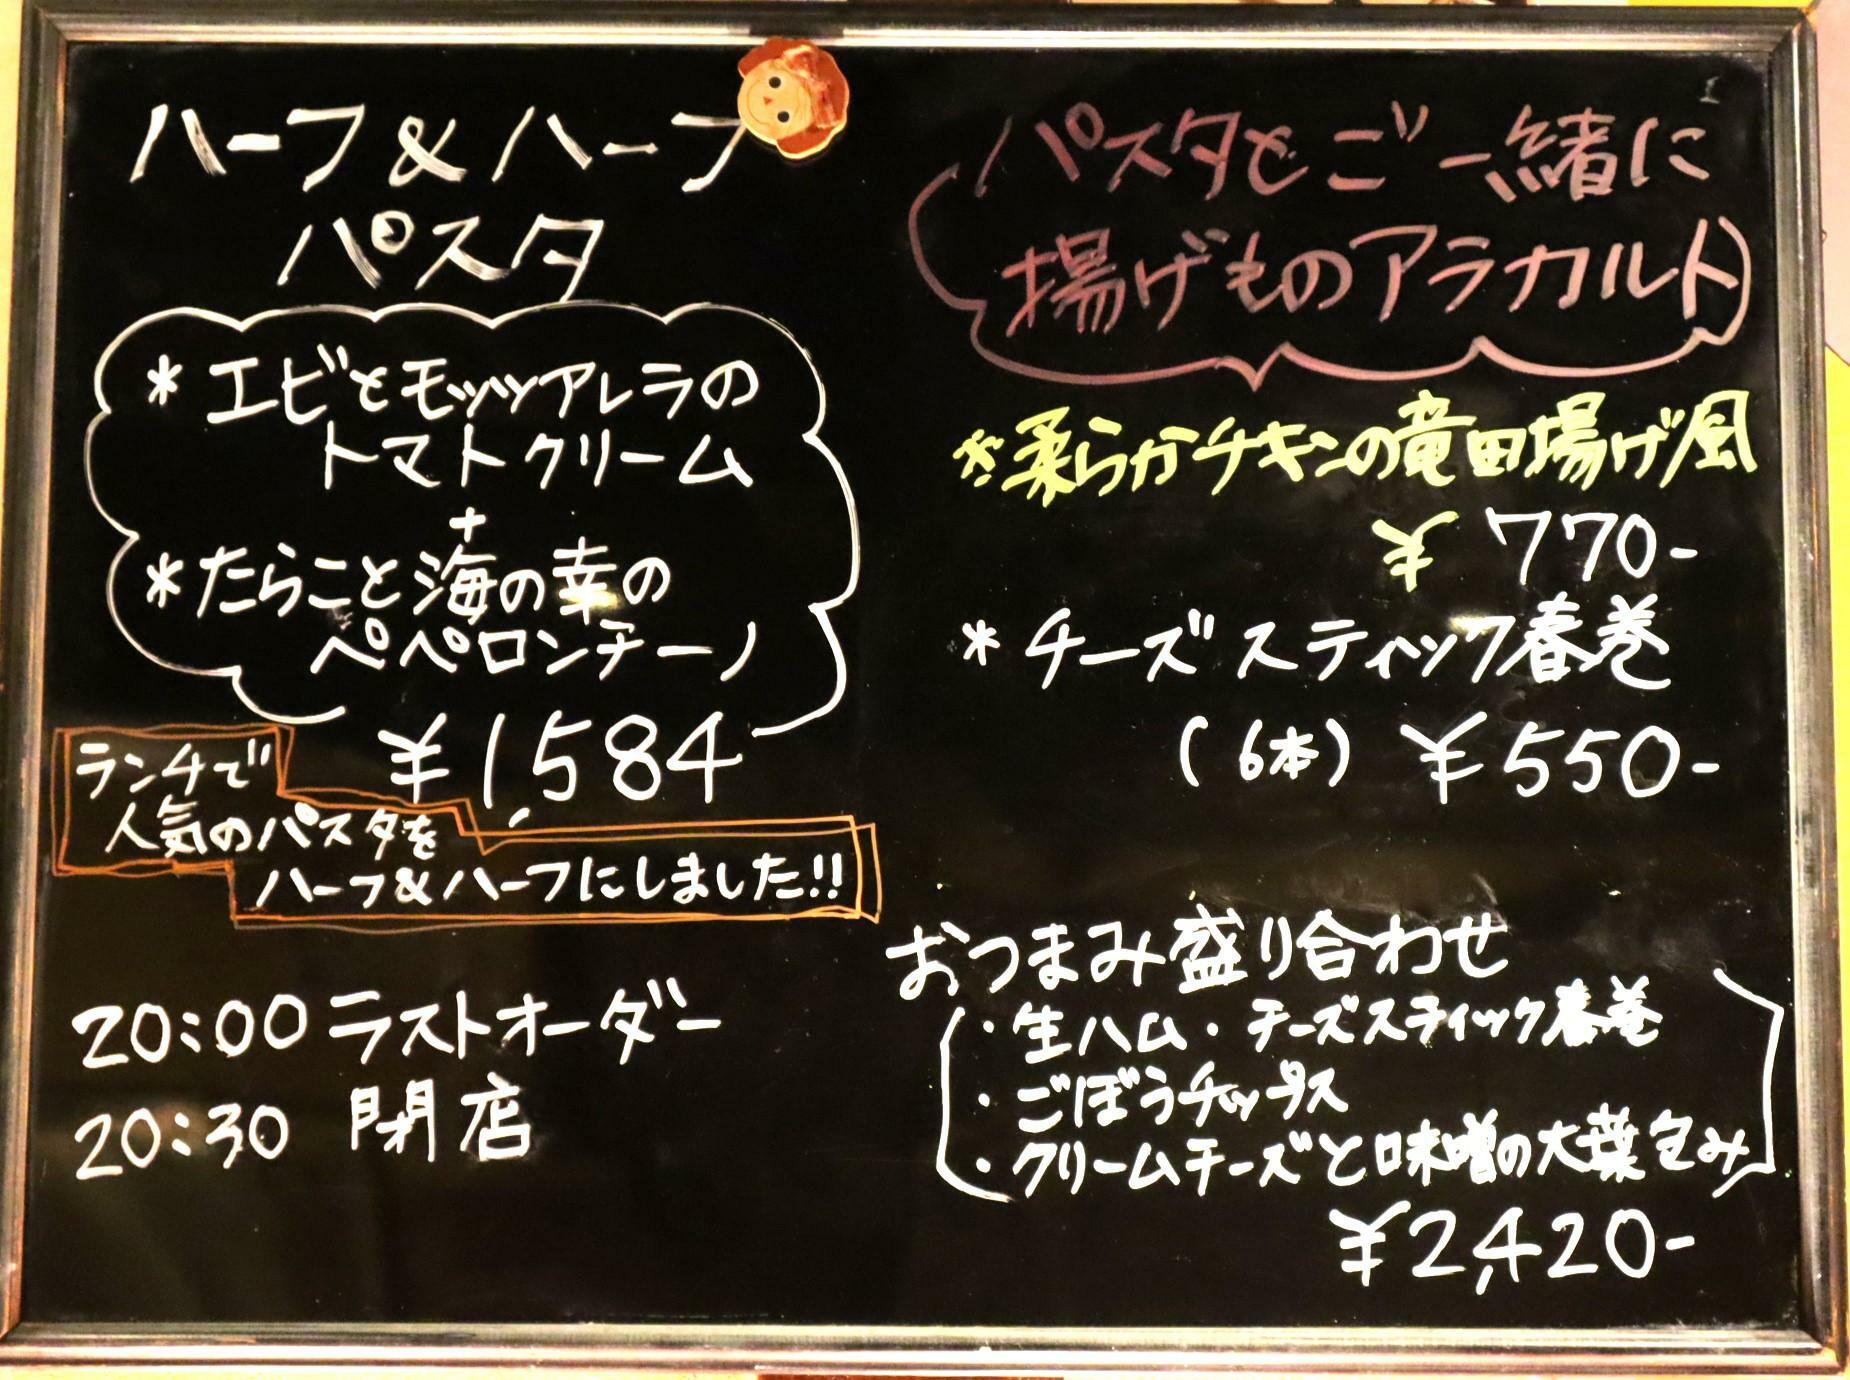 ハーフ&ハーフ
パスタ
*エビとモッツアレラの
トマトクリーム
+
*たらこと海の幸の
ペペロンチーノ
¥1,584
ランチで
人気のパスタを
ハーフ&ハーフにしました!!
20:00 ラストオーダー
20:30 閉店
パスタとご一緒に
揚げものアラカルト
*柔らかチキンの竜田揚げ風
¥770-
*チーズスティック春巻
(6本) ¥550-
おつまみ盛り合わせ
・生ハム・チーズスティック春巻
・ごぼうチップス
・クリームチーズと味噌の大葉包み
¥2,420-